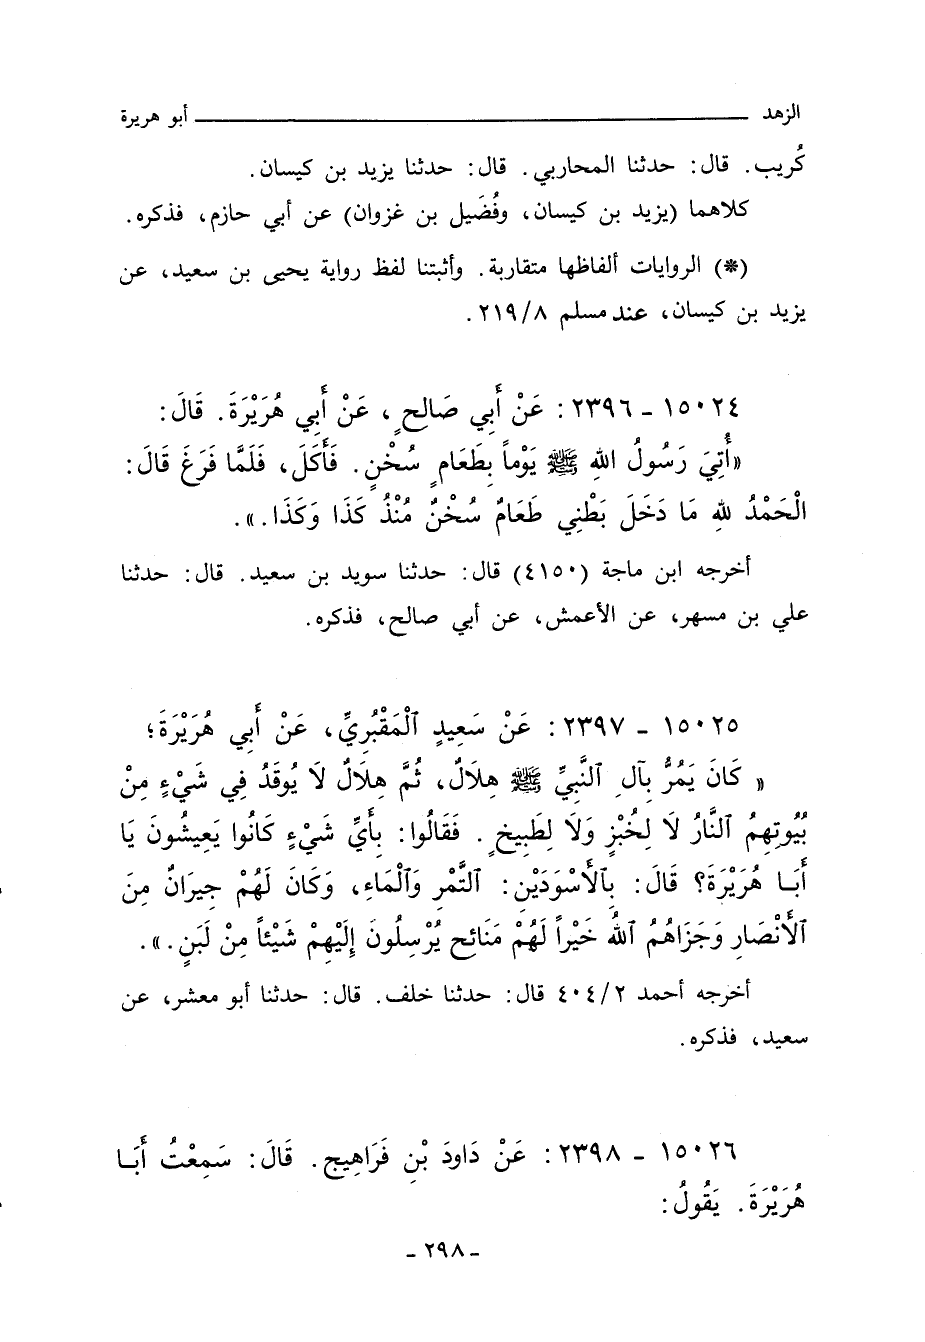 الزهد ــــــــــــ أبو هريرة
كُريب. قال: حدثنا المحاربي. قال: حدثنا يزيد بن كيسان.
كلاهما (يزيد بن كيسان، وفُضَيل بن غزوان) عن أبي حازم، فذكره.
(*) الروايات ألفاظها متقاربة. وأثبتنا لفظ رواية يحيى بن سعيد، عن
يزيد بن كيسان، عند مسلم ٢١٩/٨.
١٥٠٢٤ - ٢٣٩٦: عَنْ أَبِي صَالِحٍ، عَنْ أَبِي هُرَيْرَةَ. قَالَ:
«أُتِيَ رَسُولُ اللهِ ﷺ يَوْماً بِطَعَامٍ سُخْنٍ. فَأَكَلَ، فَلَمَّا فَرَغَ قَالَ:
الْحَمْدُ للهِ مَا دَخَلَ بَطْنِي طَعَامٌ سُخْنٌ مُنْذُ كَذَا وَكَذَا.».
أخرجه ابن ماجة (٤١٥٠) قال: حدثنا سويد بن سعيد. قال: حدثنا
علي بن مسهر، عن الأعمش، عن أبي صالح، فذكره.
١٥٠٢٥ - ٢٣٩٧: عَنْ سَعِيدٍ ٱلْمَقْبُرِيِّ، عَنْ أَبِي هُرَيْرَةَ؛
« كَانَ يَمُرُّ بِآلِ ٱلنَّبِيِّ ﷺ هِلَالٌ، ثُمَّ هِلَالٌ لَا يُوقَدُ فِي شَيْءٍ مِنْ
بُيُوتِهِمُ ٱلنَّارُ لَا لِخُبْزٍ وَلَا لِطَبِيخٍ. فَقَالُوا: بِأَيِّ شَيْءٍ كَانُوا يَعِيشُونَ يَا
أَبَا هُرَيْرَةَ؟ قَالَ: بِٱلأَسْوَدَيْنِ: ٱلتَّمْرِ وَٱلْمَاءِ، وَكَانَ لَهُمْ جِيرَانٌ مِنَ
ٱلأَنْصَارِ وَجَزَاهُمُ ٱللهُ خَيْراً لَهُمْ مَنَائِحُ يُرْسِلُونَ إِلَيْهِمْ شَيْئاً مِنْ لَبَنٍ.».
أخرجه أحمد ٤٠٤/٢ قال: حدثنا خلف. قال: حدثنا أبو معشر، عن
سعيد، فذكره.
١٥٠٢٦ - ٢٣٩٨: عَنْ دَاودَ بْنِ فَرَاهِيج. قَالَ: سَمِعْتُ أَبَا
هُرَيْرَةَ. يَقُولُ:
- ٢٩٨ -